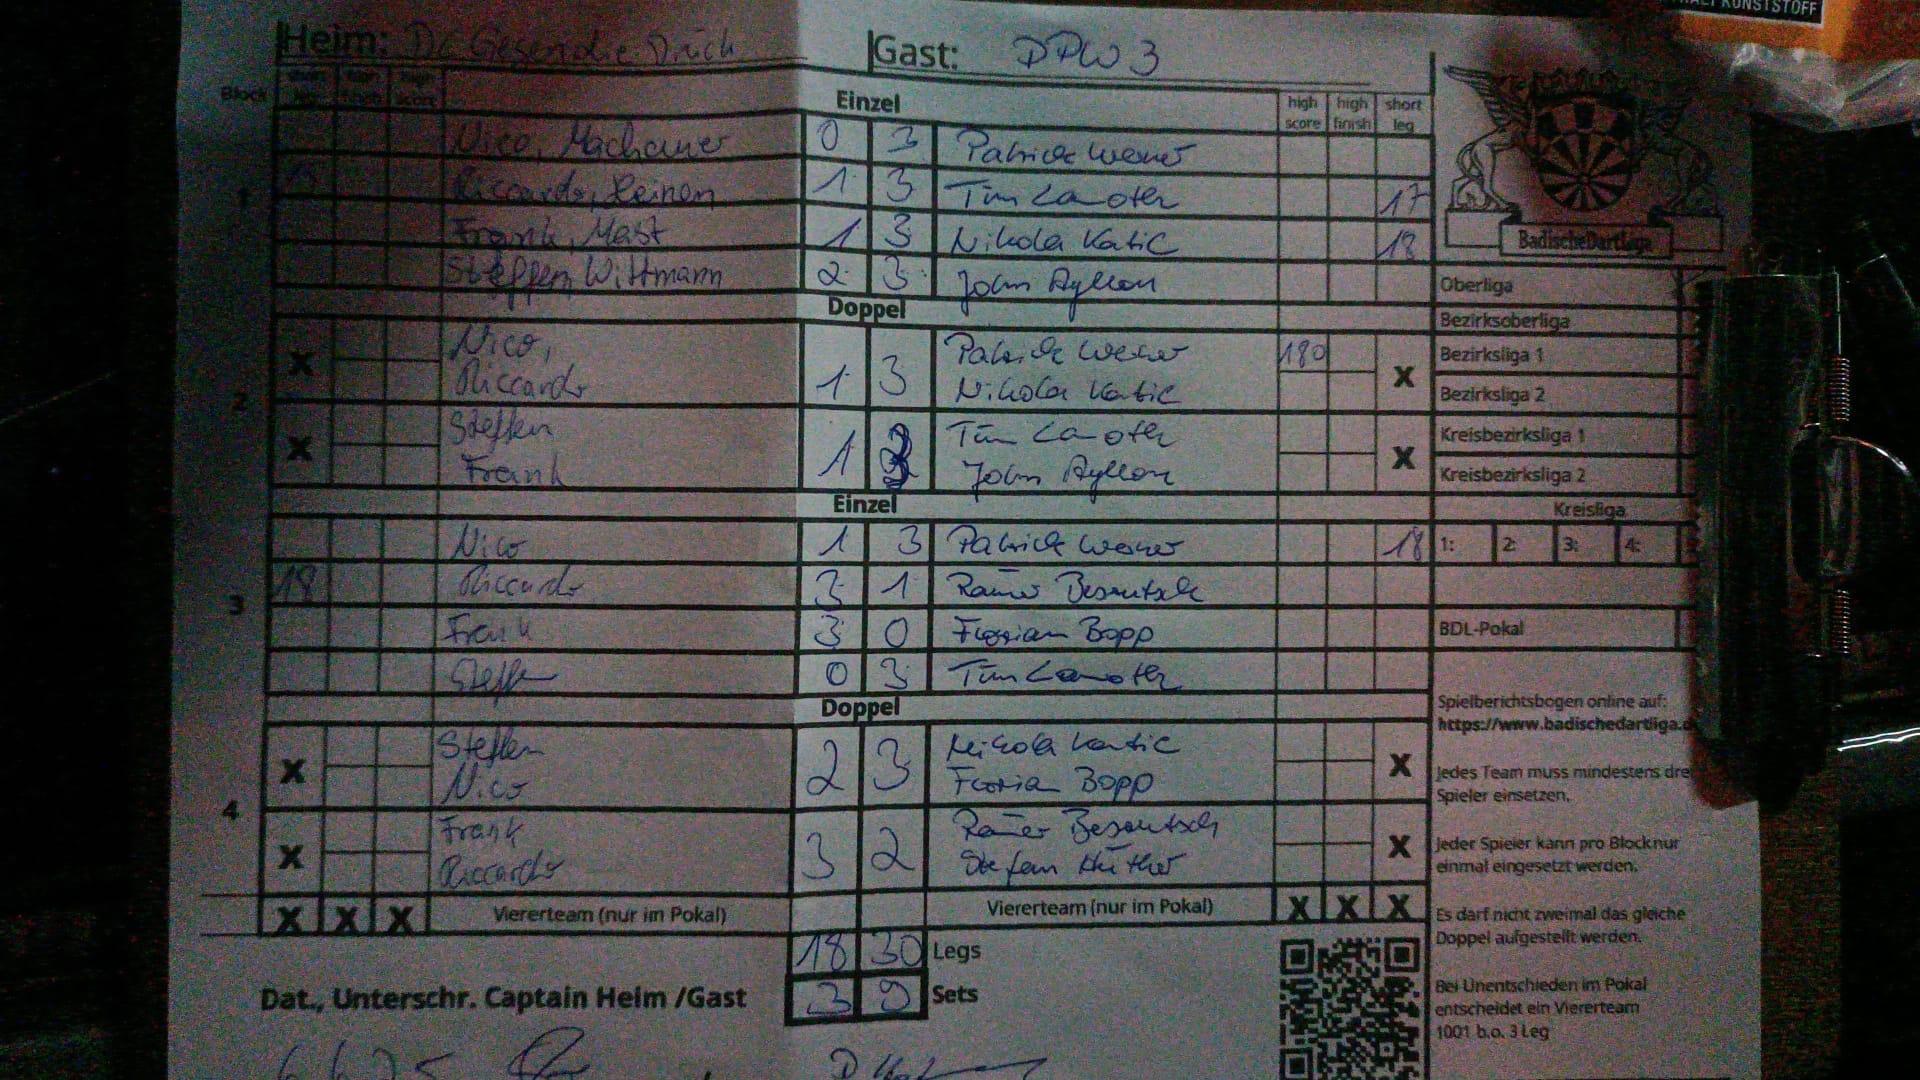 Heim: DC Gegen die Drück Gast: DPW 3
Block short leg high finish high score Einzel high score high finish short leg
1
Nico, Machauer 0 3 Patrick Werner
Riccardo, Reinen 1 3 Tim Lamoth 17
Frank, Mast 1 3 Nikola Katic 18
Steffen, Wittmann 2 3 John Ayllon
Doppel
2
X Nico, 1 3 Patrick Werner 180 X
Riccardo Nikola Katic
X Steffen 1 3 Tim Lamoth X
Frank John Ayllon
Einzel
3
Nico 1 3 Patrick Werner 18
18 Riccardo 3 1 Rainer
Frank 3 0 Florian Bopp
Steffen 0 3 Tim Lamoth
Doppel
4
X Steffen 2 3 Nikola Katic X
Nico Florian Bopp
X Frank 3 2 Rainer X
Riccardo Stefan
X X X Viererteam (nur im Pokal) Viererteam (nur im Pokal) X X X
18 30 Legs
3 9 Sets
Dat., Unterschr. Captain Heim /Gast
BadischeDartLiga
Oberliga
Bezirksoberliga
Bezirksliga 1
Bezirksliga 2
Kreisbezirksliga 1
Kreisbezirksliga 2
Kreisliga
1: 2: 3: 4:
BDL-Pokal
Spielberichtsbogen online auf:
https://www.badischedartliga.d
Jedes Team muss mindestens drei
Spieler einsetzen.
Jeder Spieler kann pro Blocknur
einmal eingesetzt werden.
Es darf nicht zweimal das gleiche
Doppel aufgestellt werden.
Bei Unentschieden im Pokal
entscheidet ein Viererteam
1001 b.o. 3 Leg
KUNSTSTOFF